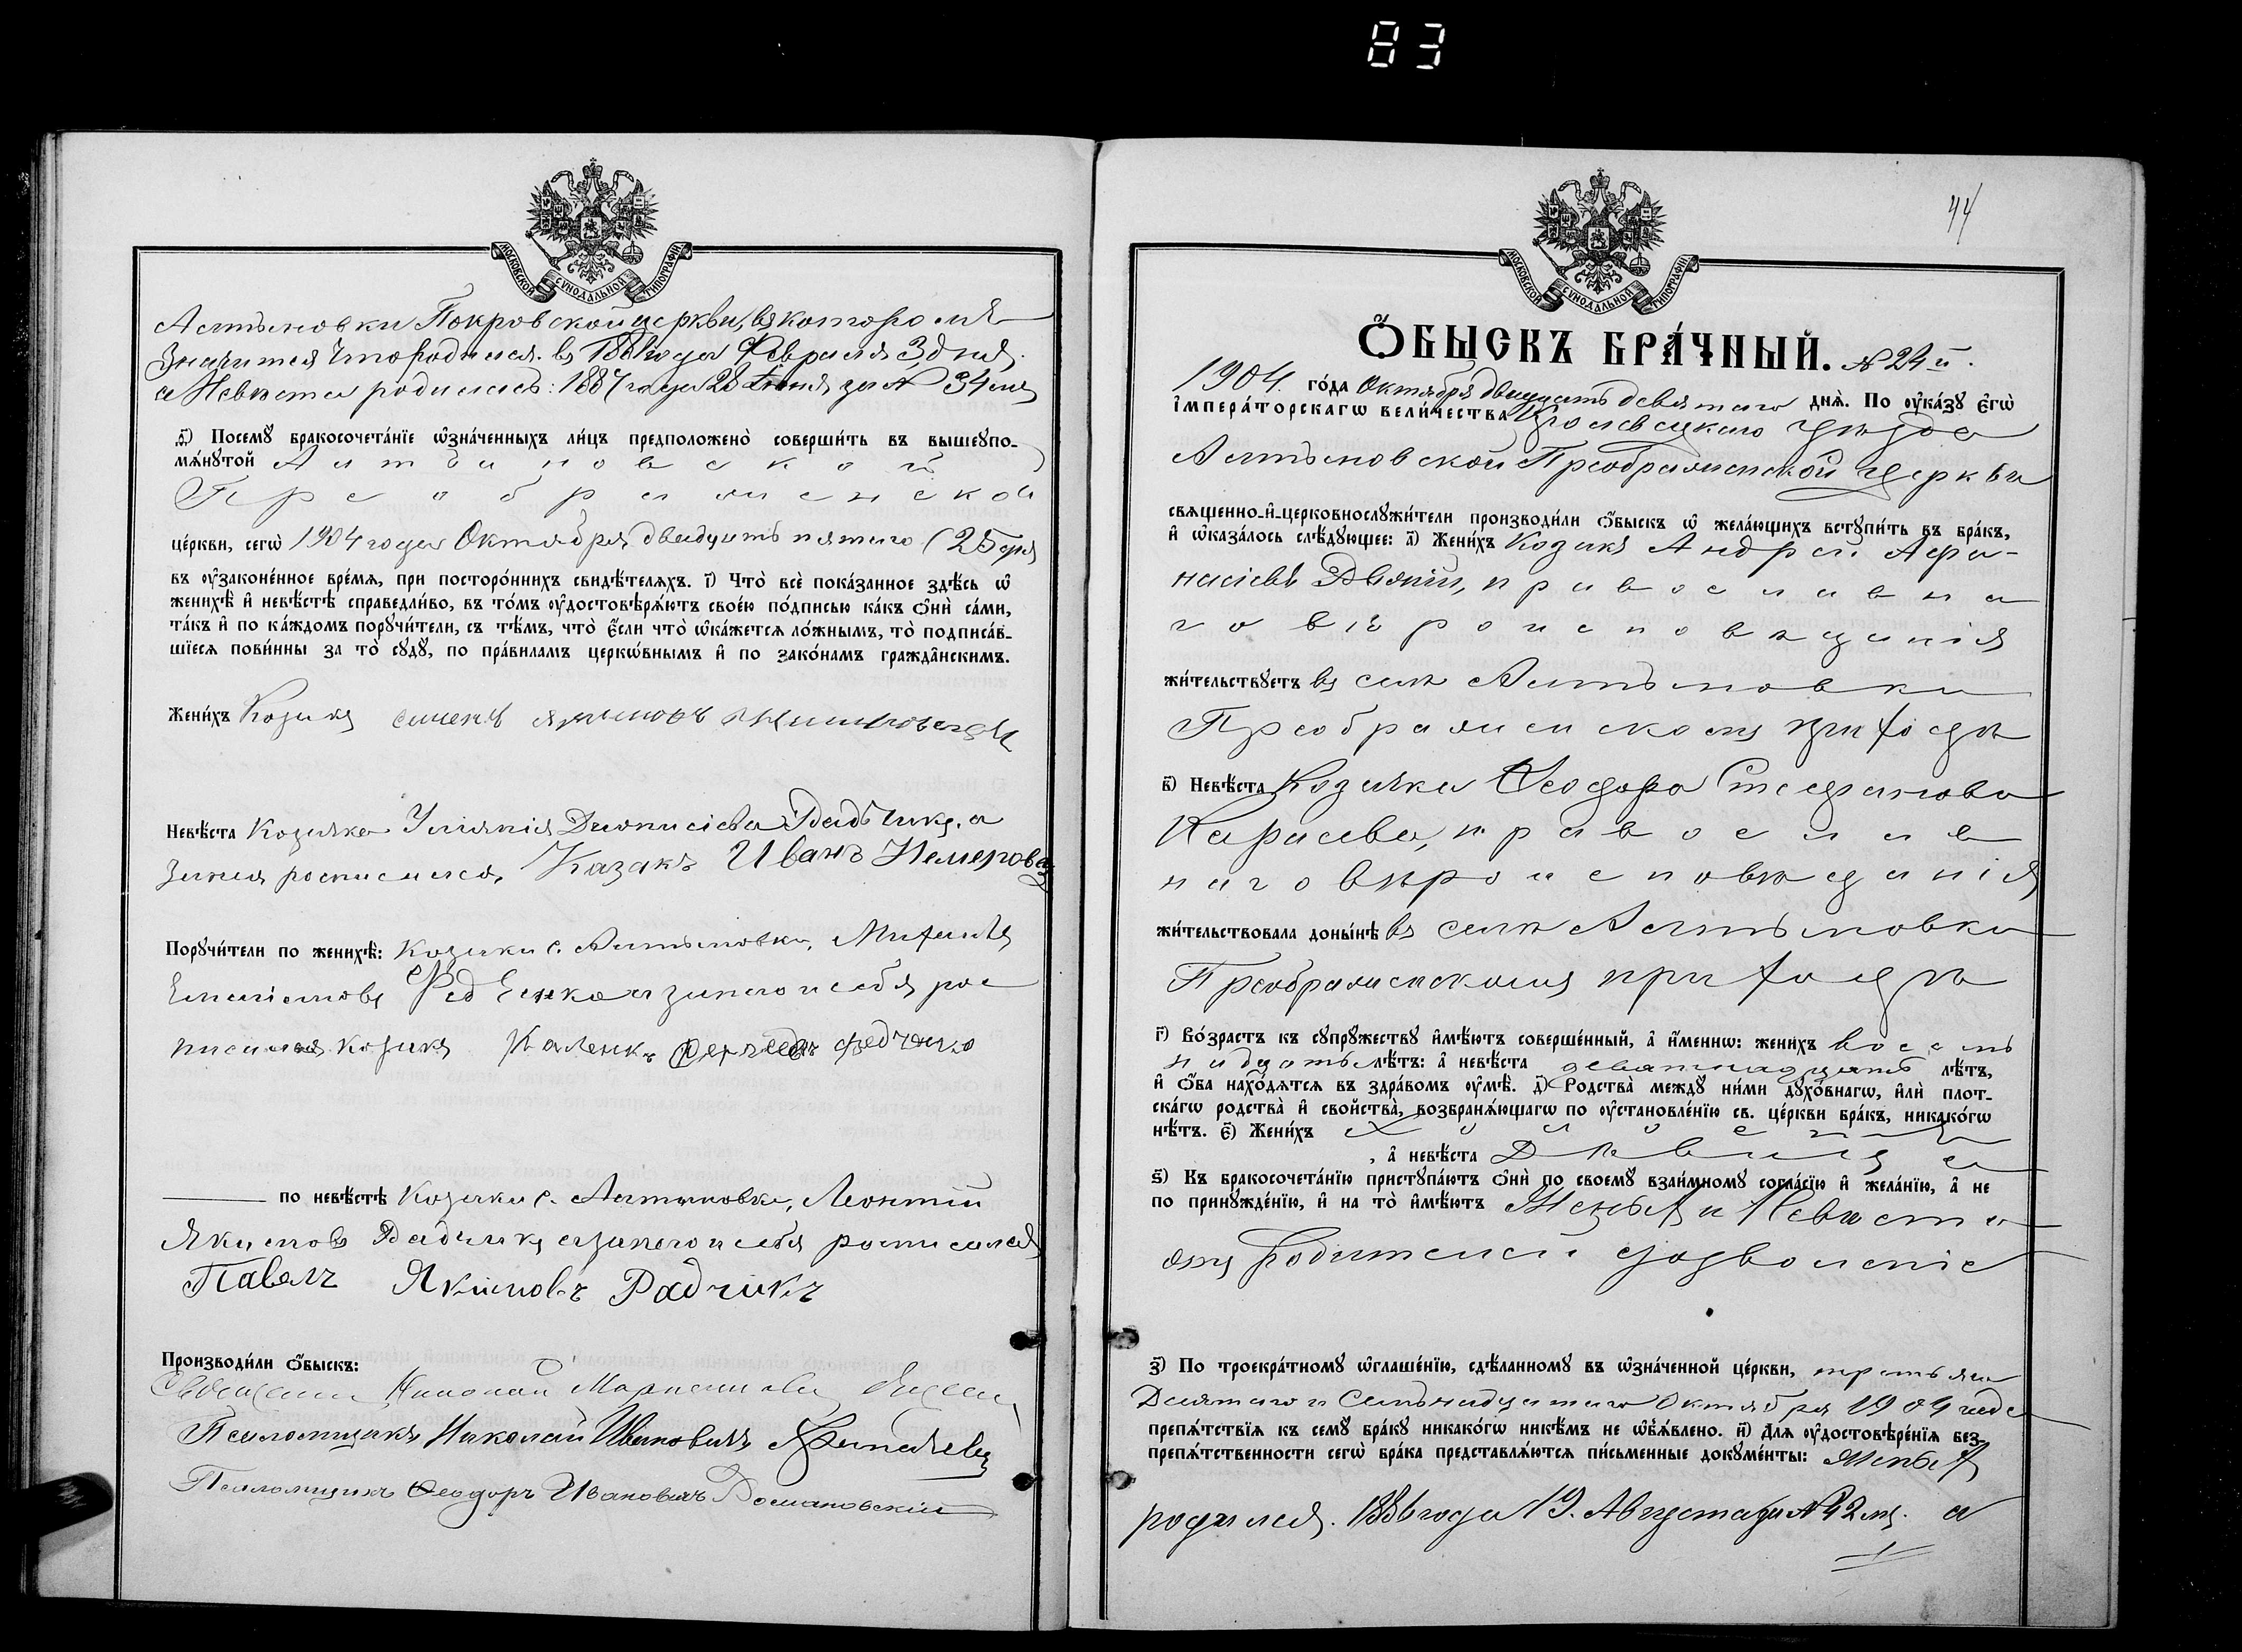 83
МОСКОВСКОЙ СѴНОДАЛЬНОЙ ТИПОГРАФІИ
Алтыновки Покровской церкви, въ которомъ
значится что родился въ года Февраля 3 дня.
а Невѣста родилась: 1887 года 28 за № 34 мъ
ѳ҃) Посемꙋ̀ бракосочета́нїе ѡ҆зна́ченныхъ ли́цъ предположено̀ соверши́ть въ вышеꙋпо-
мѧ́нꙋтой Алтыновской
Преображенской
це́ркви, сегѡ̀ 1904 года Октября двадцать пятаго (25 дня)
въ ᲂу҆законе́нное вре́мѧ, при посторо́ннихъ свидѣ́телѧхъ. і҃) Что̀ всѐ пока́занное здѣ́сь ѡ҆
женихѣ̀ и҆ невѣ́стѣ справедли́во, въ то́мъ ᲂу҆достовѣрѧ́ютъ свое́ю по́дписью ка́къ ѻ҆нѝ са́ми,
та́къ и҆ по ка́ждомъ порꙋчи́тели, съ тѣ́мъ, что̀ є҆́сли что̀ ѡ҆ка́жетсѧ ло́жнымъ, то̀ подписа́в-
шїесѧ пови́нны за то̀ сꙋдꙋ̀, по пра́виламъ церко́внымъ и҆ по зако́намъ гражда̂нскимъ.
Жени́хъ Козакъ
Невѣ́ста Козачка Уліянія Діонисіева Радчикъ, а
занея росписался, Казакъ Иванъ Немеровъ
Порꙋчи́тели по женихѣ̀: Козаки с. Алтыновки, Михаилъ
Федченко а за него и себя рос
писался козакъ Каленикъ Федченко
по невѣ́стѣ Козаки с. Алтыновки, Леонтій
Якимовъ Радчикъ а за него и себя росписался
Павелъ Якимовъ Радчикъ
Производи́ли ѻ҆́быскъ:
Священникъ Николай
Псаломщикъ Николай Ивановичъ
Псаломщикъ Ѳеодоръ Ивановичъ Романовскій
44
МОСКОВСКОЙ СѴНОДАЛЬНОЙ ТИПОГРАФІИ
Ѻ҆́БЫСКЪ БРА́ЧНЫЙ. № 24 й.
1904 го́да Октября двадцать девятаго днѧ̀. По ᲂу҆ка́зꙋ є҆гѡ̀
і҆мпера́торскагѡ вели́чества Кролевецкаго уѣзда
Алтыновской Преображенской Церкви
свѧщенно-и҆-церковнослꙋжи́тели производи́ли ѻ҆́быскъ ѡ҆ жела́ющихъ встꙋпи́ть въ бра́къ,
и҆ ѡ҆каза́лось слѣ́дꙋющее: а҃) Жени́хъ Козакъ Андрей Афа-
насіевъ православна
го вѣроисповѣданія
жи́тельствꙋетъ въ селѣ Алтыновки
Преображенскомъ приходѣ
в҃) Невѣ́ста Козачка Ѳеодора Стефанова
Карасева, православ
наго вѣроисповѣданія
жи́тельствовала доны́нѣ въ селѣ Алтыновки
Преображенскомъ приходѣ
г҃) Во́зрастъ къ сꙋпрꙋ́жествꙋ и҆мѣ́ютъ соверше́нный, а҆ и҆́меннѡ: жени́хъ восем
надцать лѣ́тъ: а҆ невѣ́ста девятнадцать лѣ́тъ,
и҆ ѻ҆́ба нахо́дѧтсѧ въ здра́вомъ ᲂу҆мѣ̀. д҃) Родства̀ междꙋ̀ ни́ми дꙋхо́внагѡ, и҆лѝ плот-
ска́гѡ родства̀ и҆ свойства̀, возбранѧ́ющагѡ по ᲂу҆становле́нїю св. це́ркви бра́къ, никако́гѡ
нѣ́тъ. є҃) Жени́хъ холостъ
, а҆ невѣ́ста дѣвица
ѕ҃) Къ бракосочета́нїю пристꙋпа́ютъ ѻ҆нѝ по своемꙋ̀ взаи́мномꙋ согла́сїю и҆ жела́нїю, а҆ не
по принꙋжде́нїю, и҆ на то̀ и҆мѣ́ютъ Женихъ и Невѣста
отъ родителей дозволеніе
з҃) По троекра́тномꙋ ѡ҆глаше́нїю, сдѣ́ланномꙋ въ ѡ҆зна́ченной це́ркви, третьяго
Десятаго и Семьнадцатаго Октября 1904 года
препѧ́тствїѧ къ семꙋ̀ бра́кꙋ никако́гѡ никѣ́мъ не ѡ҆б̾ѧ́влено. и҃) Длѧ ᲂу҆достовѣре́нїѧ без-
препѧ́тственности сегѡ̀ бра́ка представлѧ́ютсѧ пи́сьменные докꙋме́нты: Женихъ
родился. 1886 года 19. Августа за № 42 мъ. а